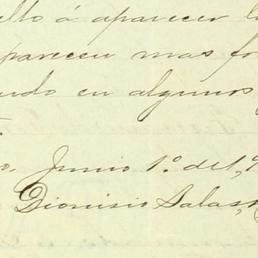 ello á aparecer l
parecen mas fo
ando en algunos
o. Junio 1º. de 1,9
Dionisio Salas